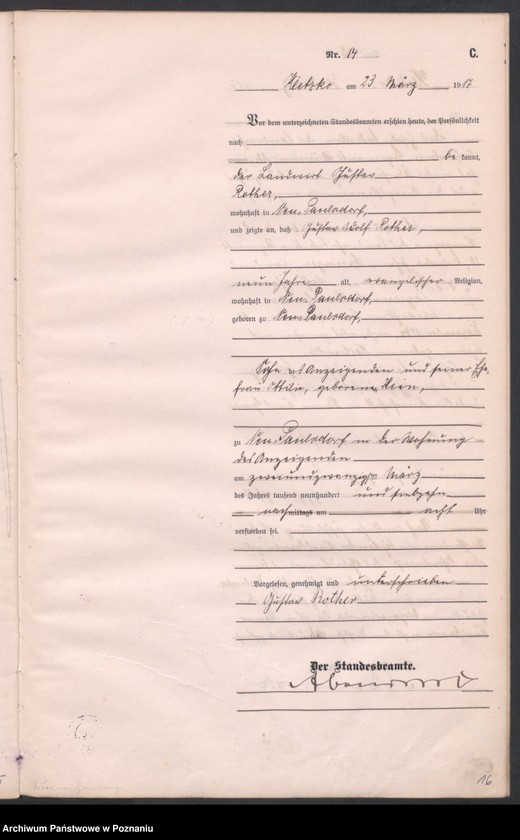 Nr. 14 C.
Kletzko am 23. März 1917
Vor dem unterzeichneten Standesbeamten erschien heute, der Persönlichkeit
nach
be kannt,
der Landwirt Gustav
Rother,
wohnhaft in Neu-Paulsdorf,
und zeigte an, daß Gustav Adolf Rother,
neun Jahre alt, evangelischer Religion,
wohnhaft in Neu-Paulsdorf,
geboren zu Neu-Paulsdorf,
Sohn des Anzeigenden und seiner Ehe-
frau Ottilie, geborene Klein,
zu Neu-Paulsdorf in der Wohnung
des Anzeigenden
am zweiundzwanzigsten März
des Jahres tausend neunhundert und siebzehn
nachmittags um acht Uhr
verstorben sei.
Vorgelesen, genehmigt und unterschrieben
Gustav Rother
Der Standesbeamte.
16
Archiwum Państwowe w Poznaniu